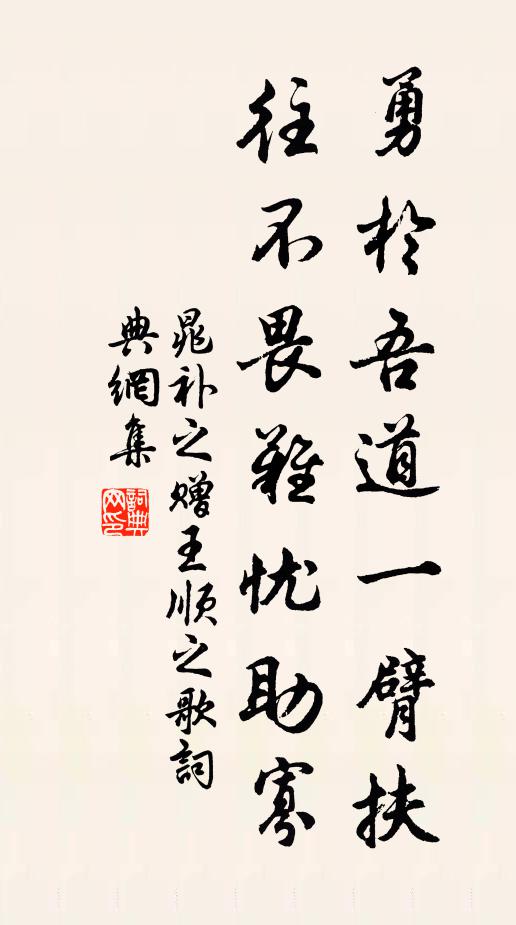 勇於吾道一臂扶
往不畏難忧助寡
晁补之赠王顺之歌詞
典網集
詞典網印